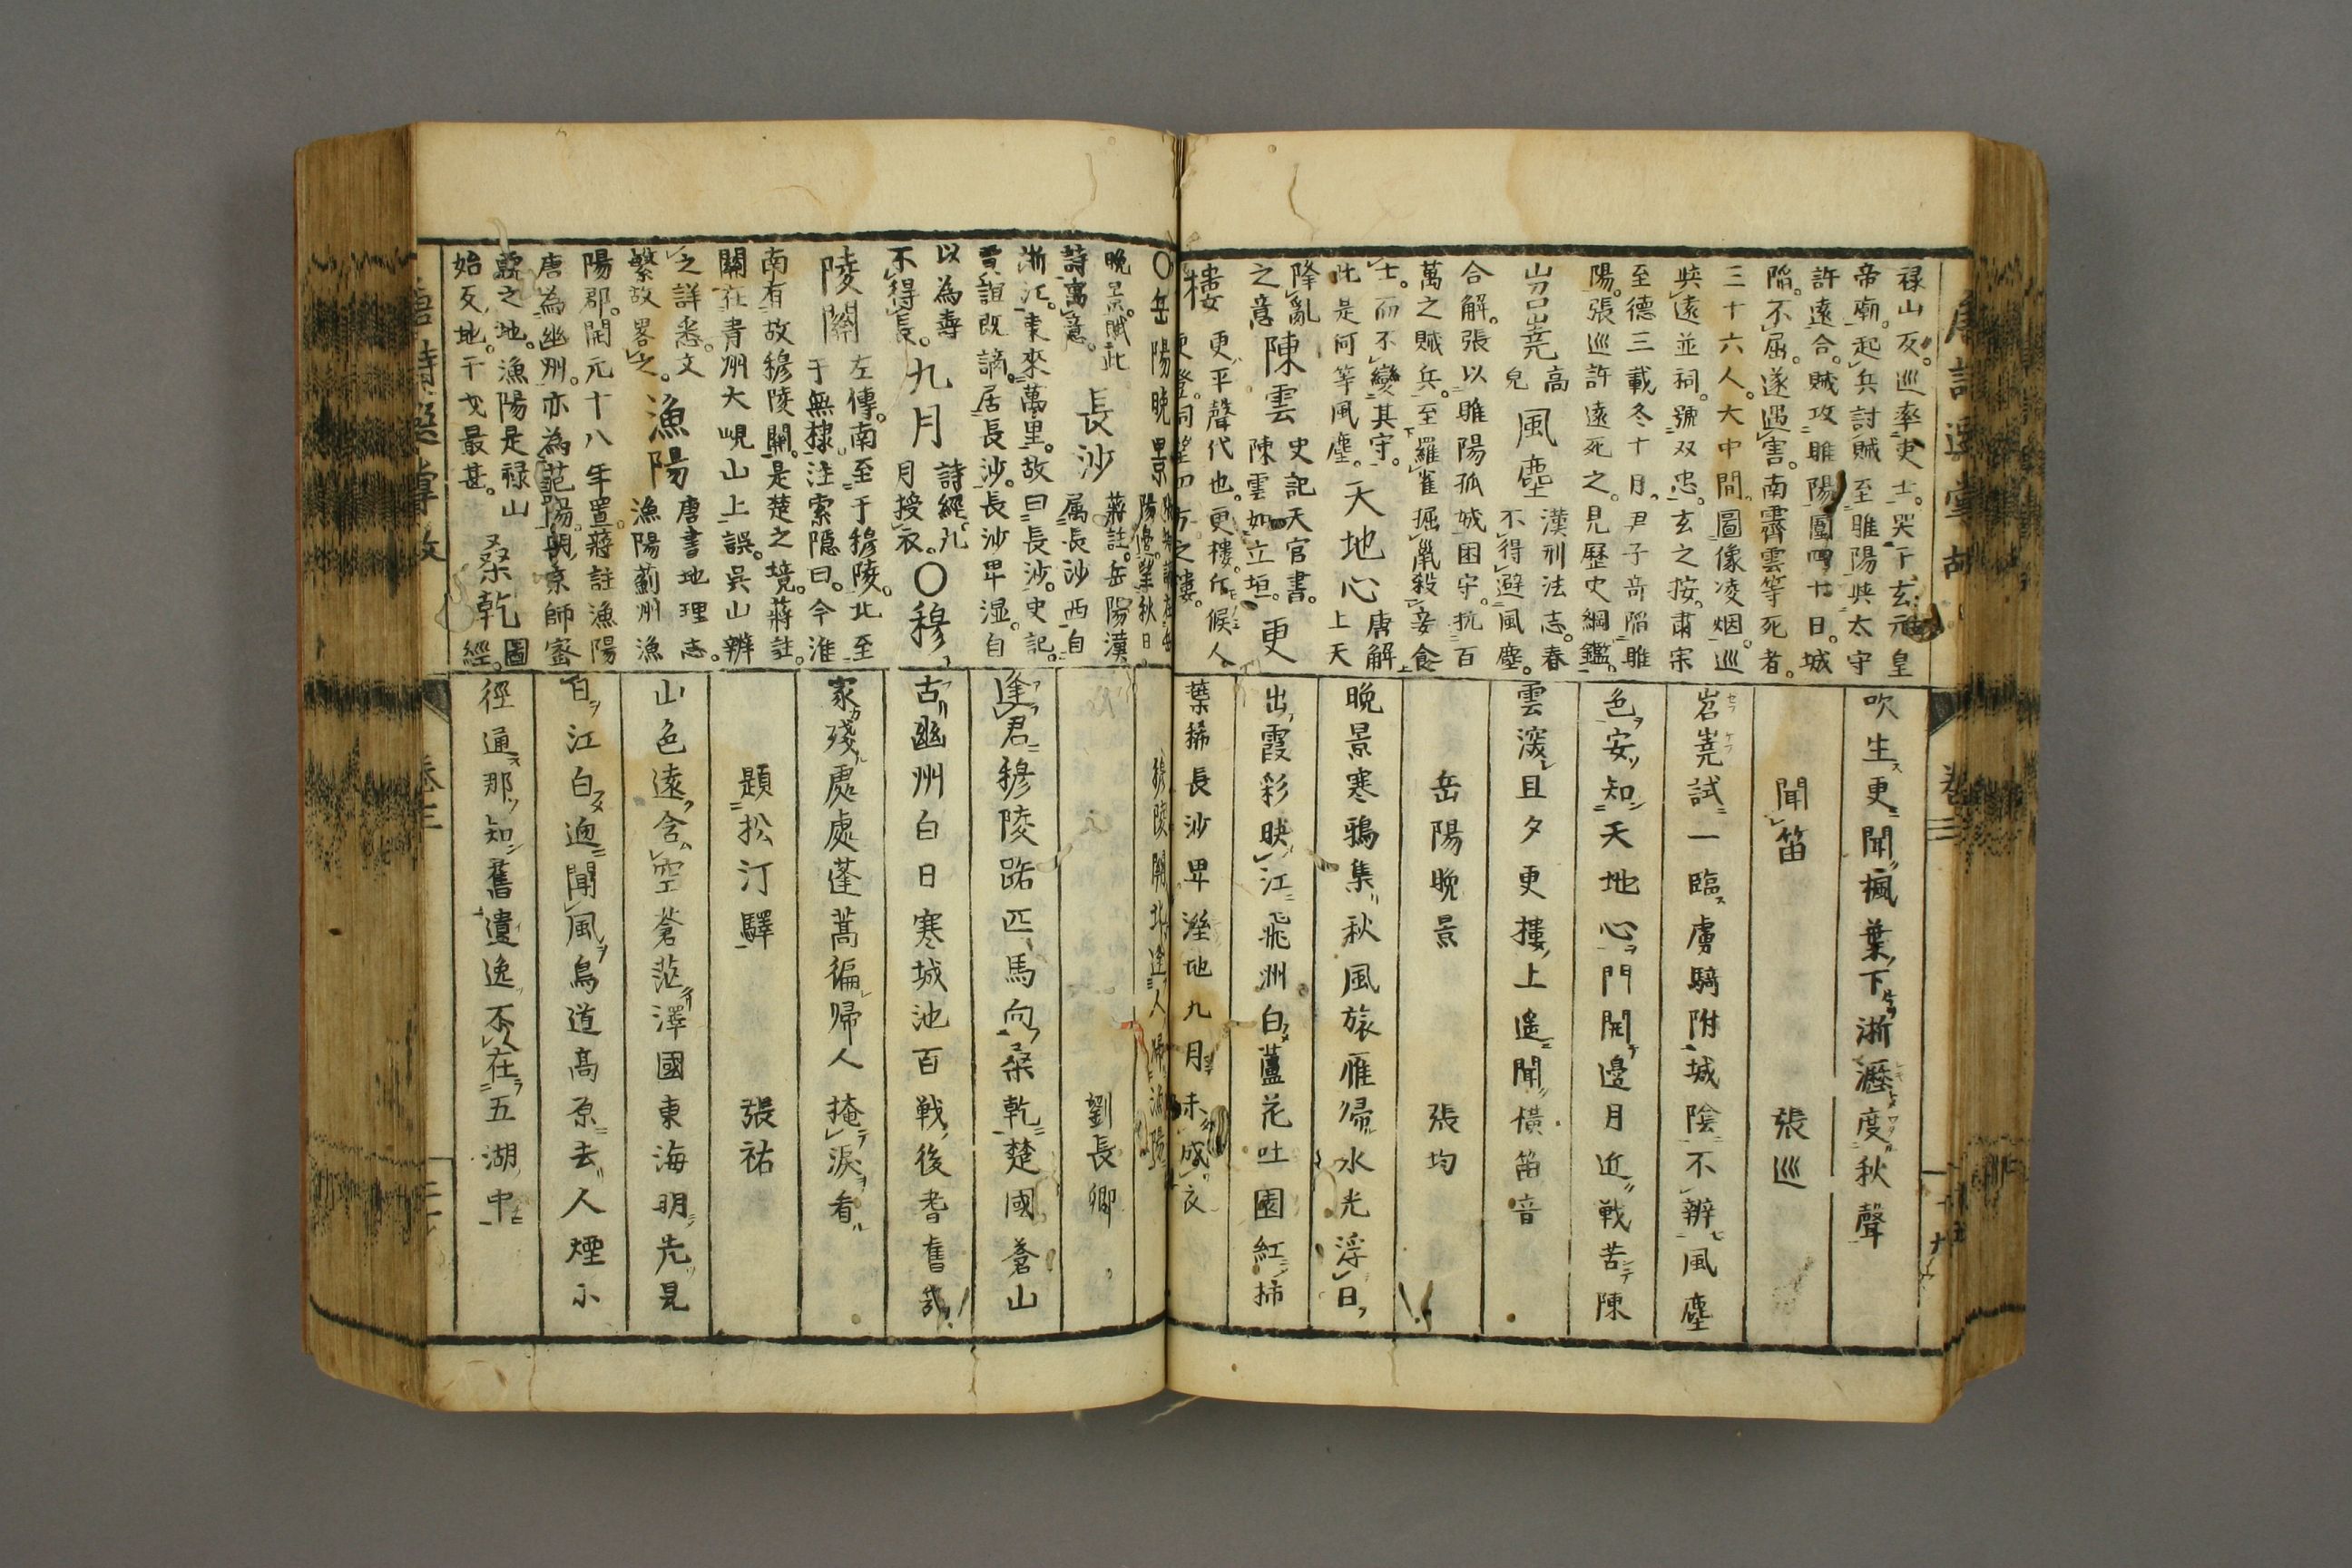 禄山反。巡率吏士。哭于玄元皇
帝廟。起兵討賊至睢陽與太守
許遠合。賊攻睢陽圍四十日。城
陷。不屈。遂遇害。南霽雲等死者。
三十六人。大中間。圖像凌烟。巡
與遠並祠。號双忠。玄之按。肅宋
至德三載冬十月。尹子奇陥睢
陽。張巡許遠死之。見歷史綱鑑。
岧嶤 高皃 風塵 漢刑法志。春不得避風塵。
合解。張以睢陽孤城困守。抗百
萬之賊兵。至羅雀掘鼠殺妾食
士。而不變其守。此是何等風塵。 天地心 唐解上天
降亂之意 陳雲 史記天官書。陳雲如立垣。 更
樓 更平聲代也。更樓。斥候人更登。伺望四方之樓。
吹生更聞楓葉下淅瀝度秋聲
聞笛 張巡
岧嶤試一臨虜騎附城陰不辨風塵
色安知天地心門開邊月近戰苦陳
雲深旦夕更樓上遙聞橫笛音
岳陽晚景 張均
晚景寒鴉集秋風旅雁歸水光浮日
出霞彩映江飛洲白蘆花吐園紅柿
葉稀長沙卑溼地九月未成衣
○岳陽晚景 陽優望秋日。
晚景賦此詩寓意。 長沙 蔣註。岳陽漢属長沙西自
浙江。東來萬里。故曰長沙。史記。
賈誼既謫。居長沙。長沙卑湿。自
以為壽不得長。 九月 詩經。九月授衣。 ○穆
陵關 左傳。南至于穆陵。北至于無棣。注索隠曰。今淮
南有故穆陵關。是楚之境。蔣註。
關在青州大峴山上誤。呉山辨
之詳悉。文繁故畧之。 漁陽 唐書地理志。漁陽薊州漁
陽郡。開元十八年置。蔣註漁陽
唐為幽州。亦為范陽。明京師密
雲之地。漁陽是禄山始反地。干戈最甚。 桑乾 圖經。
穆陵關北逢人歸漁陽
劉長卿
逢君穆陵路匹馬向桑乾楚國蒼山
古幽州白日寒城池百戰後耆舊幾
家殘處處蓬蒿徧歸人掩淚看
題松汀驛 張祜
山色遠含空蒼茫澤國東海明先見
日江白迥聞風鳥道高原去人煙小
徑通那知舊遺逸不在五湖中